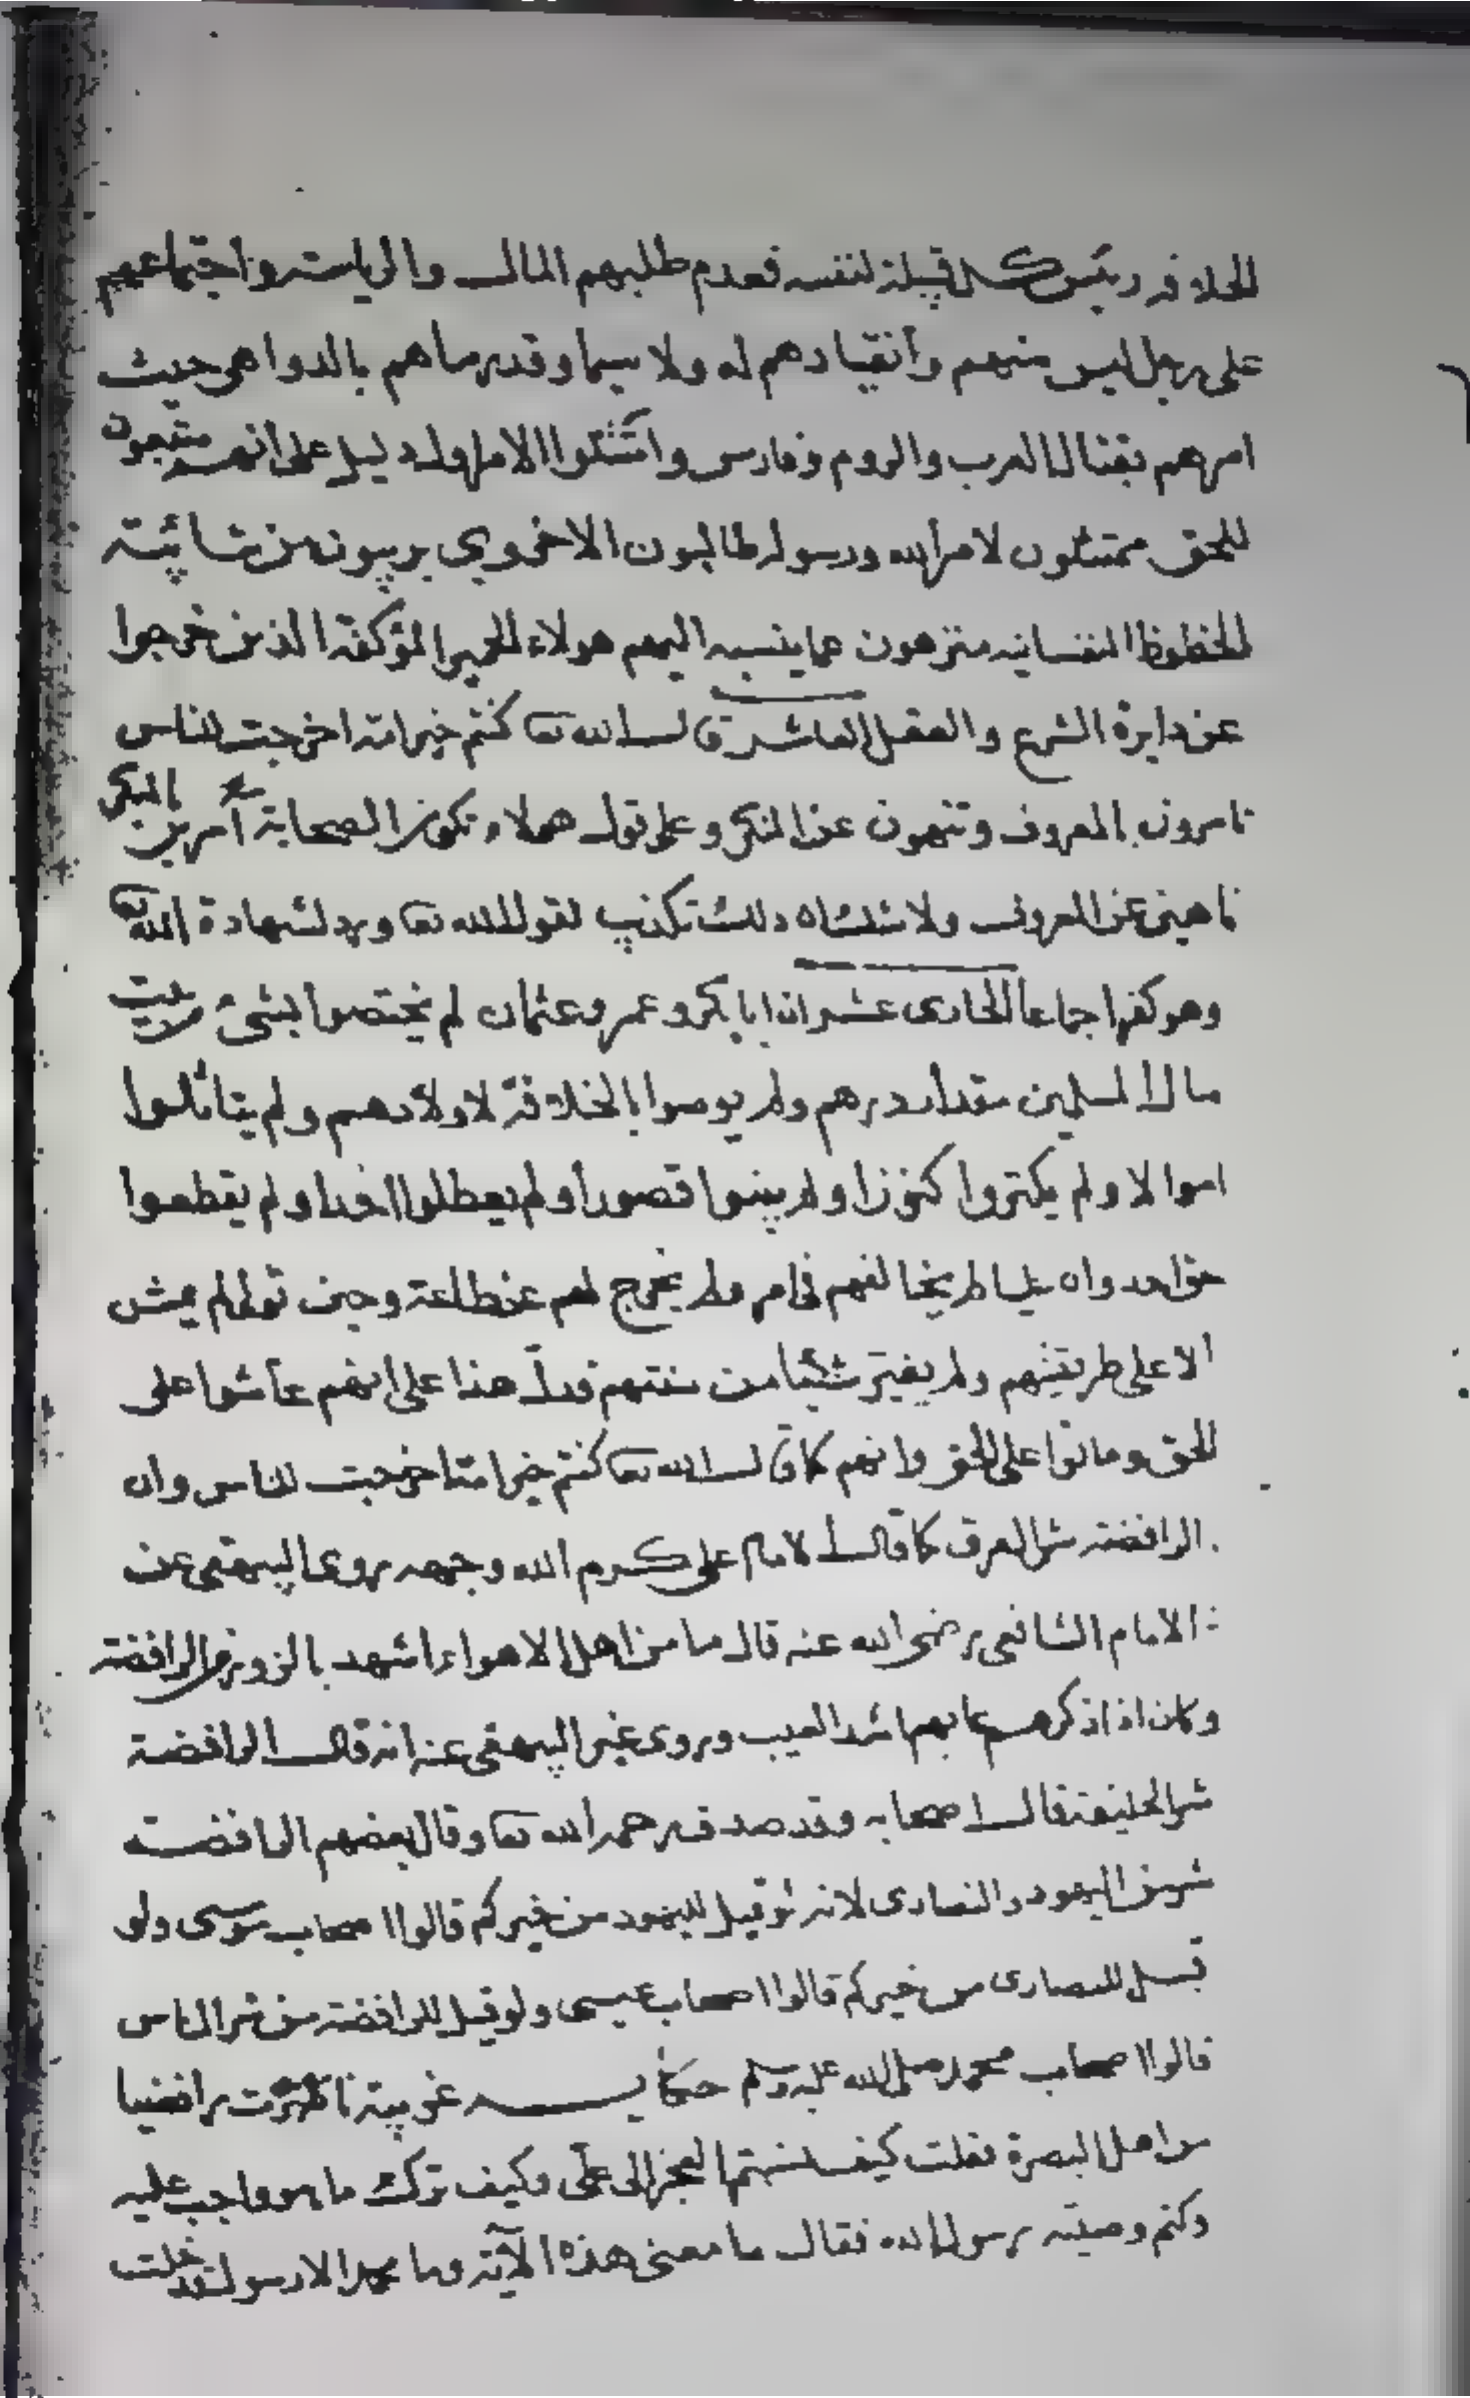 الخلافة رئيس كل قبيلة لنفسه فعدم طلبهم المال والرياسة واجتماعهم
على رجل ليس منهم وانقيادهم له ولا سيما وقد رماهم بالدواهى حيث
امرهم بقتال العرب والروم وفارس وامتثلوا الامر اول دليل على انهم متبعون
للحق ممتثلون لامر الله ورسوله طالبون الاخروي بريون من شائبة
الحظوظ النفسانيه منزهون عما ينسبه اليهم هولاء الحمير المؤكفة الذين خرجوا
عن دايرة الشرع والعقل العاشر قال الله تعا كنتم خير امة اخرجت للناس
تامرون بالمعروف وتنهون عن المنكر وعلى قول هولاء تكون الصحابة آمرين بالمنكر
ناهين عن المعروف ولا شك ان ذلك تكذيب لقول الله تعا ورد لشهادة الله تعا
وهو كفر اجماعا الحادى عشر ان ابا بكر وعمر وعثمان لم يختصوا بشئ من بيت
مال المسلمين مقدار درهم ولم يوصوا بالخلافة لاولادهم ولم يتاثلوا
اموالا ولم يكنزوا كنوزا ولم يبنوا قصورا ولم يعطلوا احدا ولم يقطعوا
حق احد وان عليا لم يخالفهم فى امر ولم يخرج لهم عن طاعة وحين تولى لم يمش
الا على طريقتهم ولم يغير شيئا من سنتهم فدل هذا على انهم عاشوا على
الحق وماتوا على الحق وانهم كما قال الله تعا كنتم خير امة اخرجت للناس وان
الرافضة شر الفرق كما قال الامام على كرم الله وجهه روى البيهقى عن
الامام الشافعى رضى الله عنه قال ما من اهل الاهواء اشهد بالزور من الرافضة
وكان اذا ذكرهم عابهم اشد العيب وروى غير البيهقى عنه انه قال الرافضة
شر الخليقة قال اصحابه وقد صدق رحمه الله تعا وقال بعضهم الرافضة
شر من اليهود والنصارى لانه لو قيل لليهود من خيركم قالوا اصحاب موسى ولو
قيل للنصارى من خيركم قالوا اصحاب عيسى ولو قيل للرافضة من شر الناس
قالوا اصحاب محمد صلى الله عليه وسلم حكاية غريبة ناظرت رافضيا
من اهل البصرة فقلت كيف نسبتم العجز الى على وكيف ترك ما هو واجب عليه
وكتم وصية رسول الله فقال ما معنى هذه الآية وما محمد الا رسول قد خلت